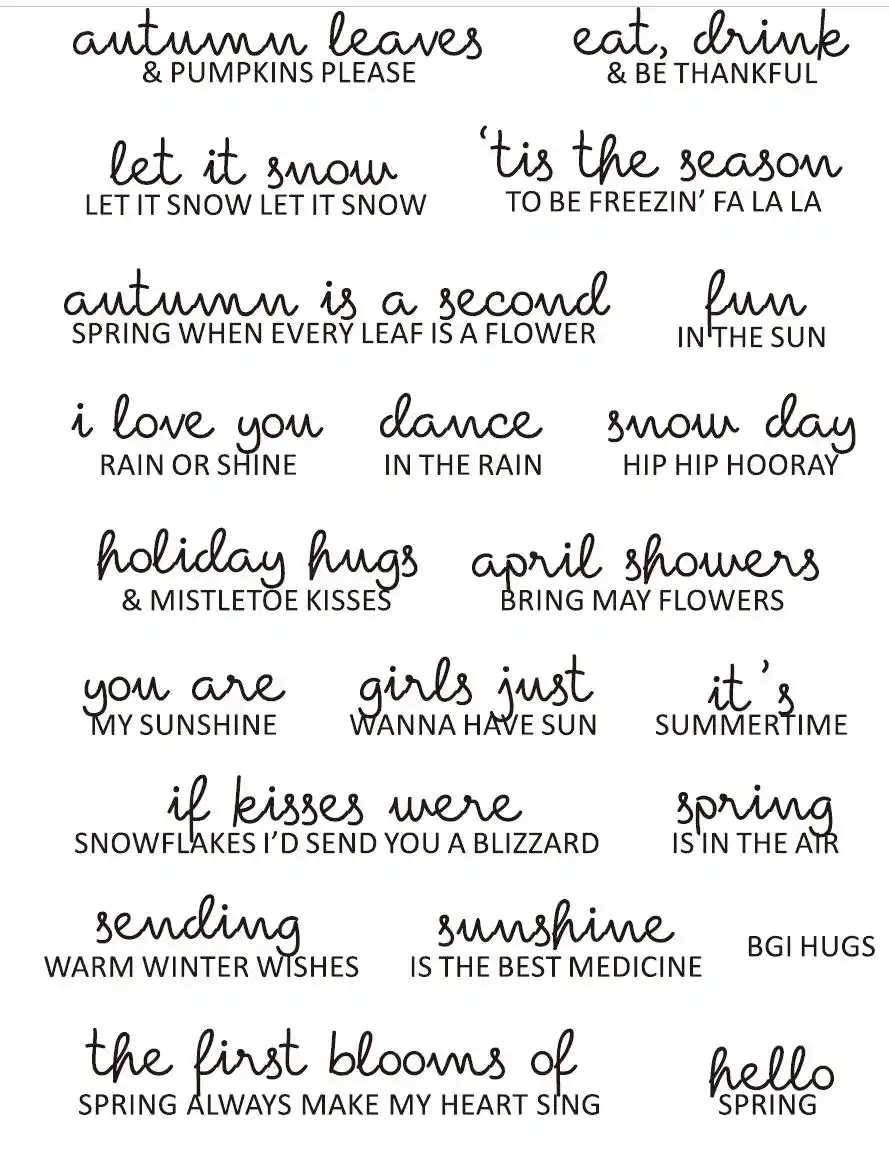 autumn leaves
& PUMPKINS PLEASE
eat, drink
& BE THANKFUL
let it snow
LET IT SNOW LET IT SNOW
‘tis the season
TO BE FREEZIN’ FA LA LA
autumn is a second
SPRING WHEN EVERY LEAF IS A FLOWER
fun
IN THE SUN
i love you
RAIN OR SHINE
dance
IN THE RAIN
snow day
HIP HIP HOORAY
holiday hugs
& MISTLETOE KISSES
april showers
BRING MAY FLOWERS
you are
MY SUNSHINE
girls just
WANNA HAVE SUN
it's
SUMMERTIME
if kisses were
SNOWFLAKES I’D SEND YOU A BLIZZARD
spring
IS IN THE AIR
sending
WARM WINTER WISHES
sunshine
IS THE BEST MEDICINE
BGI HUGS
the first blooms of
SPRING ALWAYS MAKE MY HEART SING
hello
SPRING